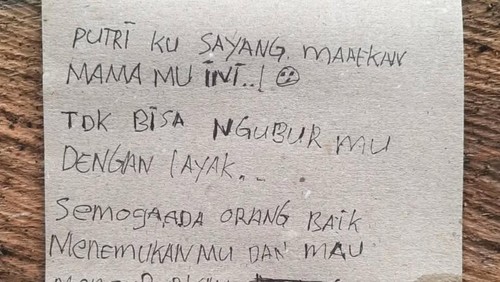 PUTRI KU SAYANG. MAAFKAN
MAMA MU INI..!
TDK BISA NGUBUR MU
DENGAN LAYAK...
SEMOGAADA ORANG BAIK
MENEMUKANMU DAN MAU